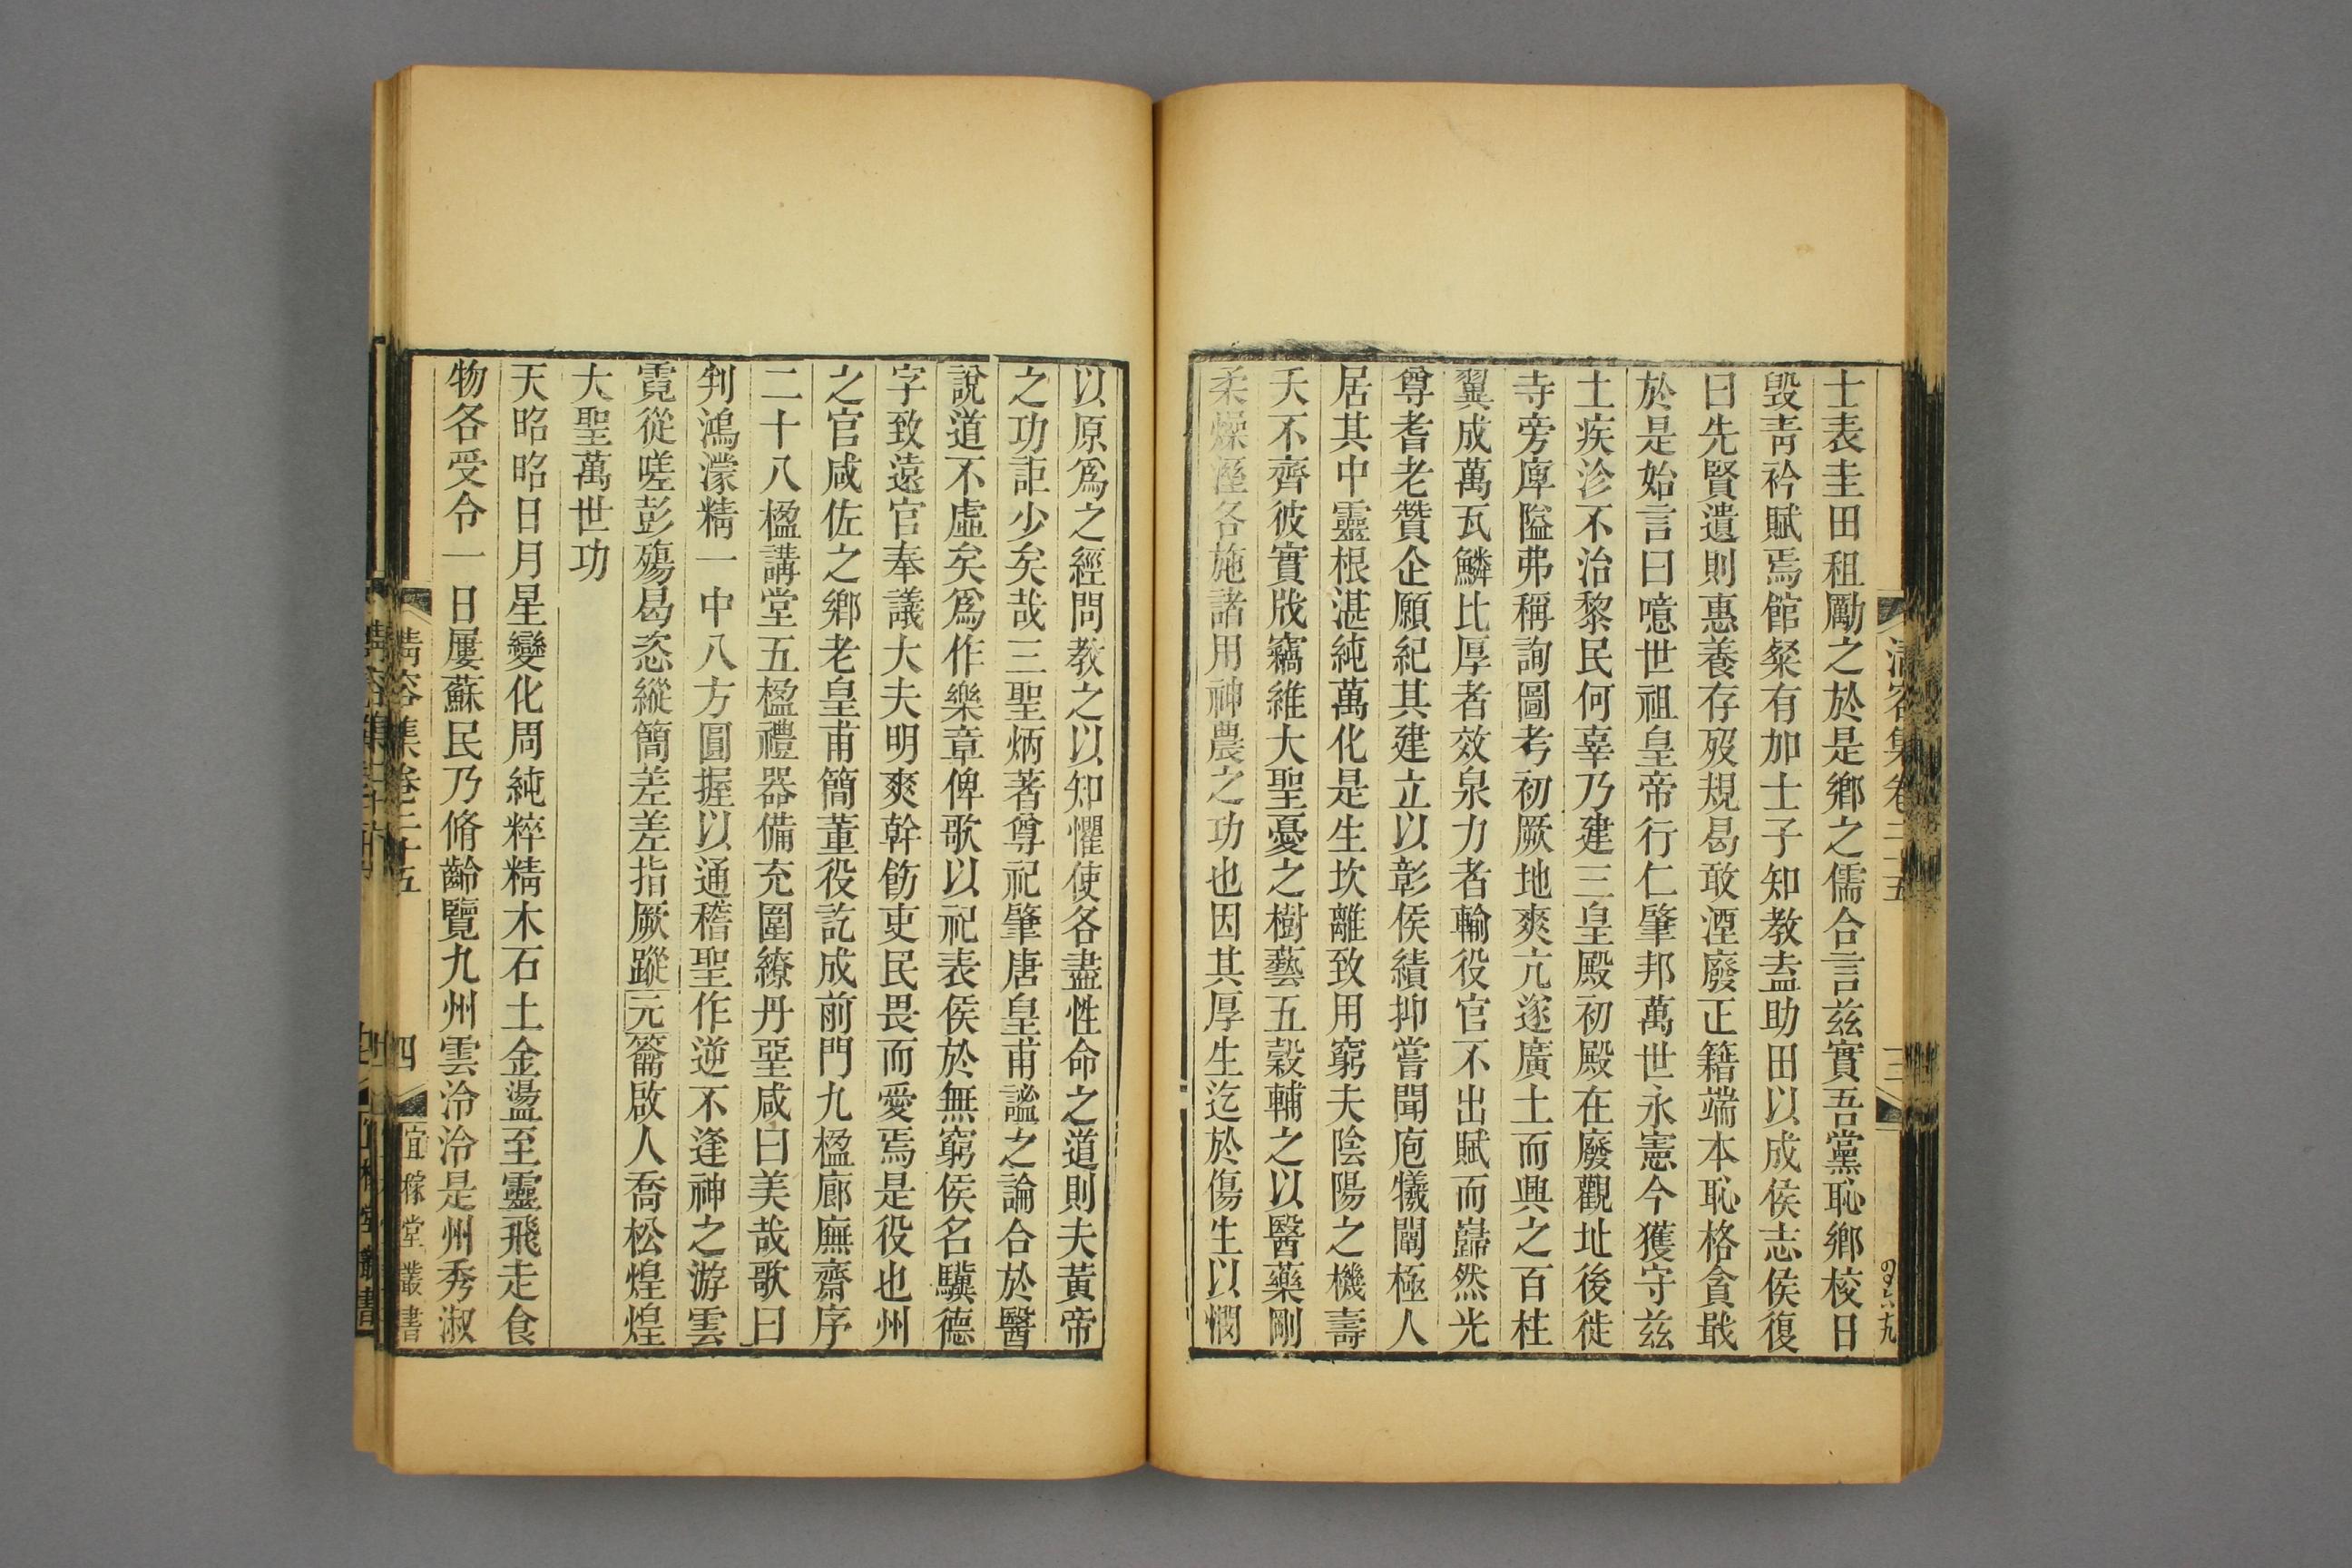 清容集卷二十五
三
士表圭田租勵之於是鄉之儒合言茲實吾黨恥鄉校日
毀靑衿賦焉館粲有加士子知教盍助田以成侯志侯復
曰先賢遺則惠養存歿規曷敢湮廢正籍端本恥格貪戢
於是始言曰噫世祖皇帝行仁肇邦萬世永憲今獲守茲
土疾沴不治黎民何辜乃建三皇殿初殿在廢觀址後徙
寺旁庳隘弗稱詢圖考初厥地爽亢遂廣土而興之百柱
翼成萬瓦鱗比厚者效泉力者輸役官不出賦而巋然光
尊耆老贊企願紀其建立以彰侯績抑嘗聞庖犧闡極人
居其中靈根湛純萬化是生坎離致用窮夫陰陽之機壽
夭不齊彼實戕竊維大聖憂之樹藝五穀輔之以醫藥剛
柔燥溼各施諸用神農之功也因其厚生迄於傷生以憫
以原爲之經問教之以知懼使各盡性命之道則夫黃帝
之功詎少矣哉三聖炳著尊祀肇唐皇甫謐之論合於醫
說道不虛矣爲作樂章俾歌以祀表侯於無窮侯名驥德
字致遠官奉議大夫明爽幹飭吏民畏而愛焉是役也州
之官咸佐之鄉老皇甫簡董役訖成前門九楹廊廡齋序
二十八楹講堂五楹禮器備充圍繚丹堊咸曰美哉歌曰
判鴻濛精一中八方圓握以通稽聖作逆不逢神之游雲
霓從嗟彭殤曷恣縱簡差差指厥蹤元籥啟人喬松煌煌
大聖萬世功
天昭昭日月星變化周純粹精木石土金盪至靈飛走食
物各受令一日屢蘇民乃脩齡覽九州雲泠泠是州秀淑
清容集卷二十五
四
宜稼堂叢書